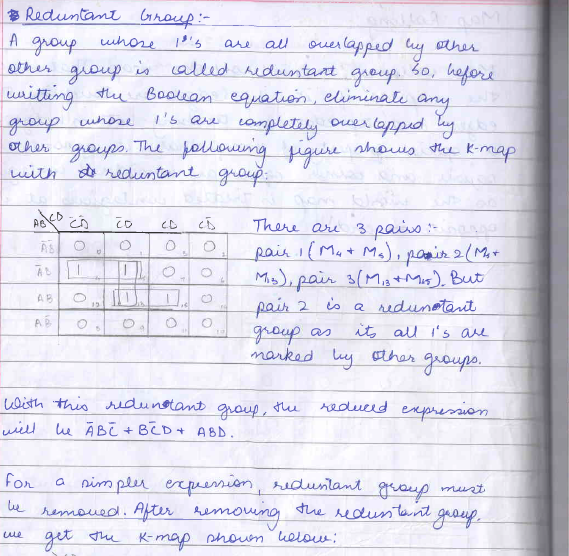 Reduntant Group:-
A group whose 1's are all overlapped by other
other group is called reduntant group. So, before
writting the Boolean equation, eliminate any
group whose 1's are completely overlapped by
other groups. The following figure shows the K-map
with reduntant group:
AB CD C̄D̄ C̄D CD CD̄
ĀB̄ 0 0 0 0
ĀB 1 1 0 0
AB 0 1 1 0
AB̄ 0 0 0 0
There are 3 pairs:-
pair 1(M4 + M5), pair 2(M5+
M13), pair 3(M13+M15). But
pair 2 is a redundtant
group as its all 1's are
marked by other groups.
With this reduntant group, the reduced expression
will be ĀBC̄ + BC̄D + ABD.
For a simpler expression, reduntant group must
be removed. After removing the reduntant group,
we get the K-map shown below: